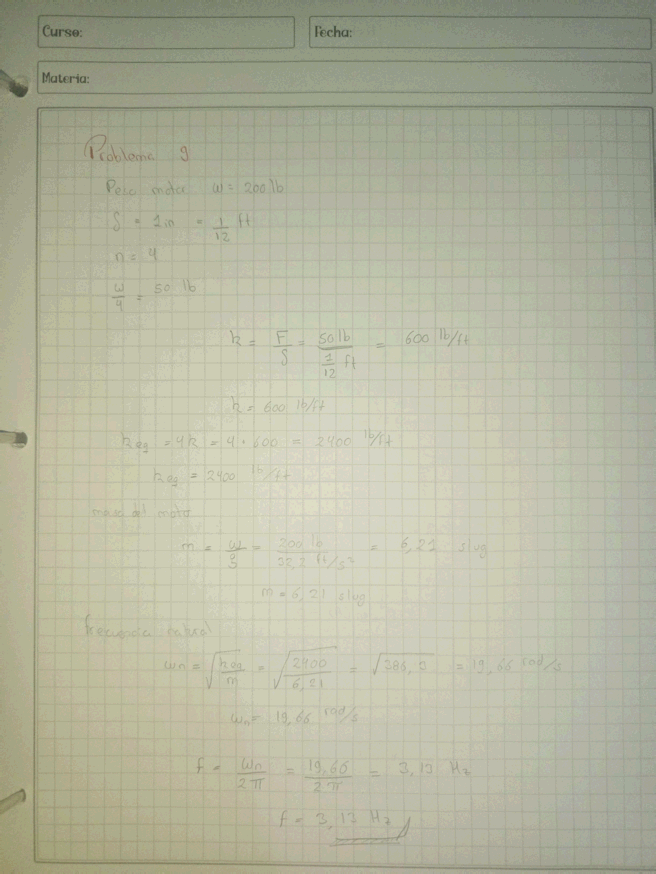 Curso:
Fecha:
Materia:
Problema 9
Peso motor w = 200 lb
δ = 1in = 1/12 ft
n = 4
w/4 = 50 lb
k = F/δ = 50 lb / (1/12 ft) = 600 lb/ft
k = 600 lb/ft
k eq = 4k = 4 · 600 = 2400 lb/ft
k eq = 2400 lb/ft
masa del motor
m = w/g = 200 lb / 32,2 ft/s² = 6,21 slug
m = 6,21 slug
frecuencia natural
wn = √(k eq/m) = √(2400/6,21) = √386,5 = 19,66 rad/s
wn = 19,66 rad/s
f = wn/2π = 19,66/2π = 3,13 Hz
f = 3,13 Hz